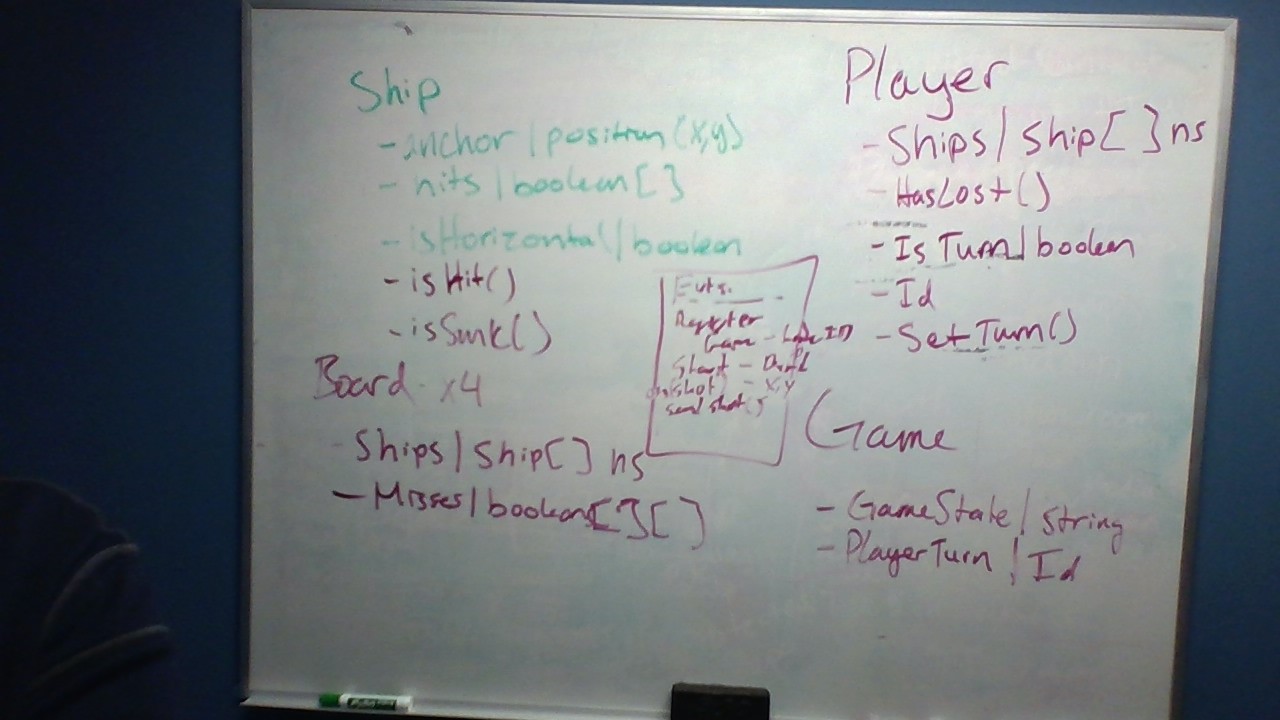 Ship
- anchor / position (x,y)
- hits / boolean[]
- isHorizontal / boolean
- isHit()
- isSunk()
Board x4
- Ships / Ship[] ns
- Misses / boolean[][]
Register
Game
Start
shot) - x,y
send shot()
Player
- Ships / Ship[] ns
- HasLost()
- IsTurn / boolean
- Id
- SetTurn()
Game
- GameState / String
- PlayerTurn / Id